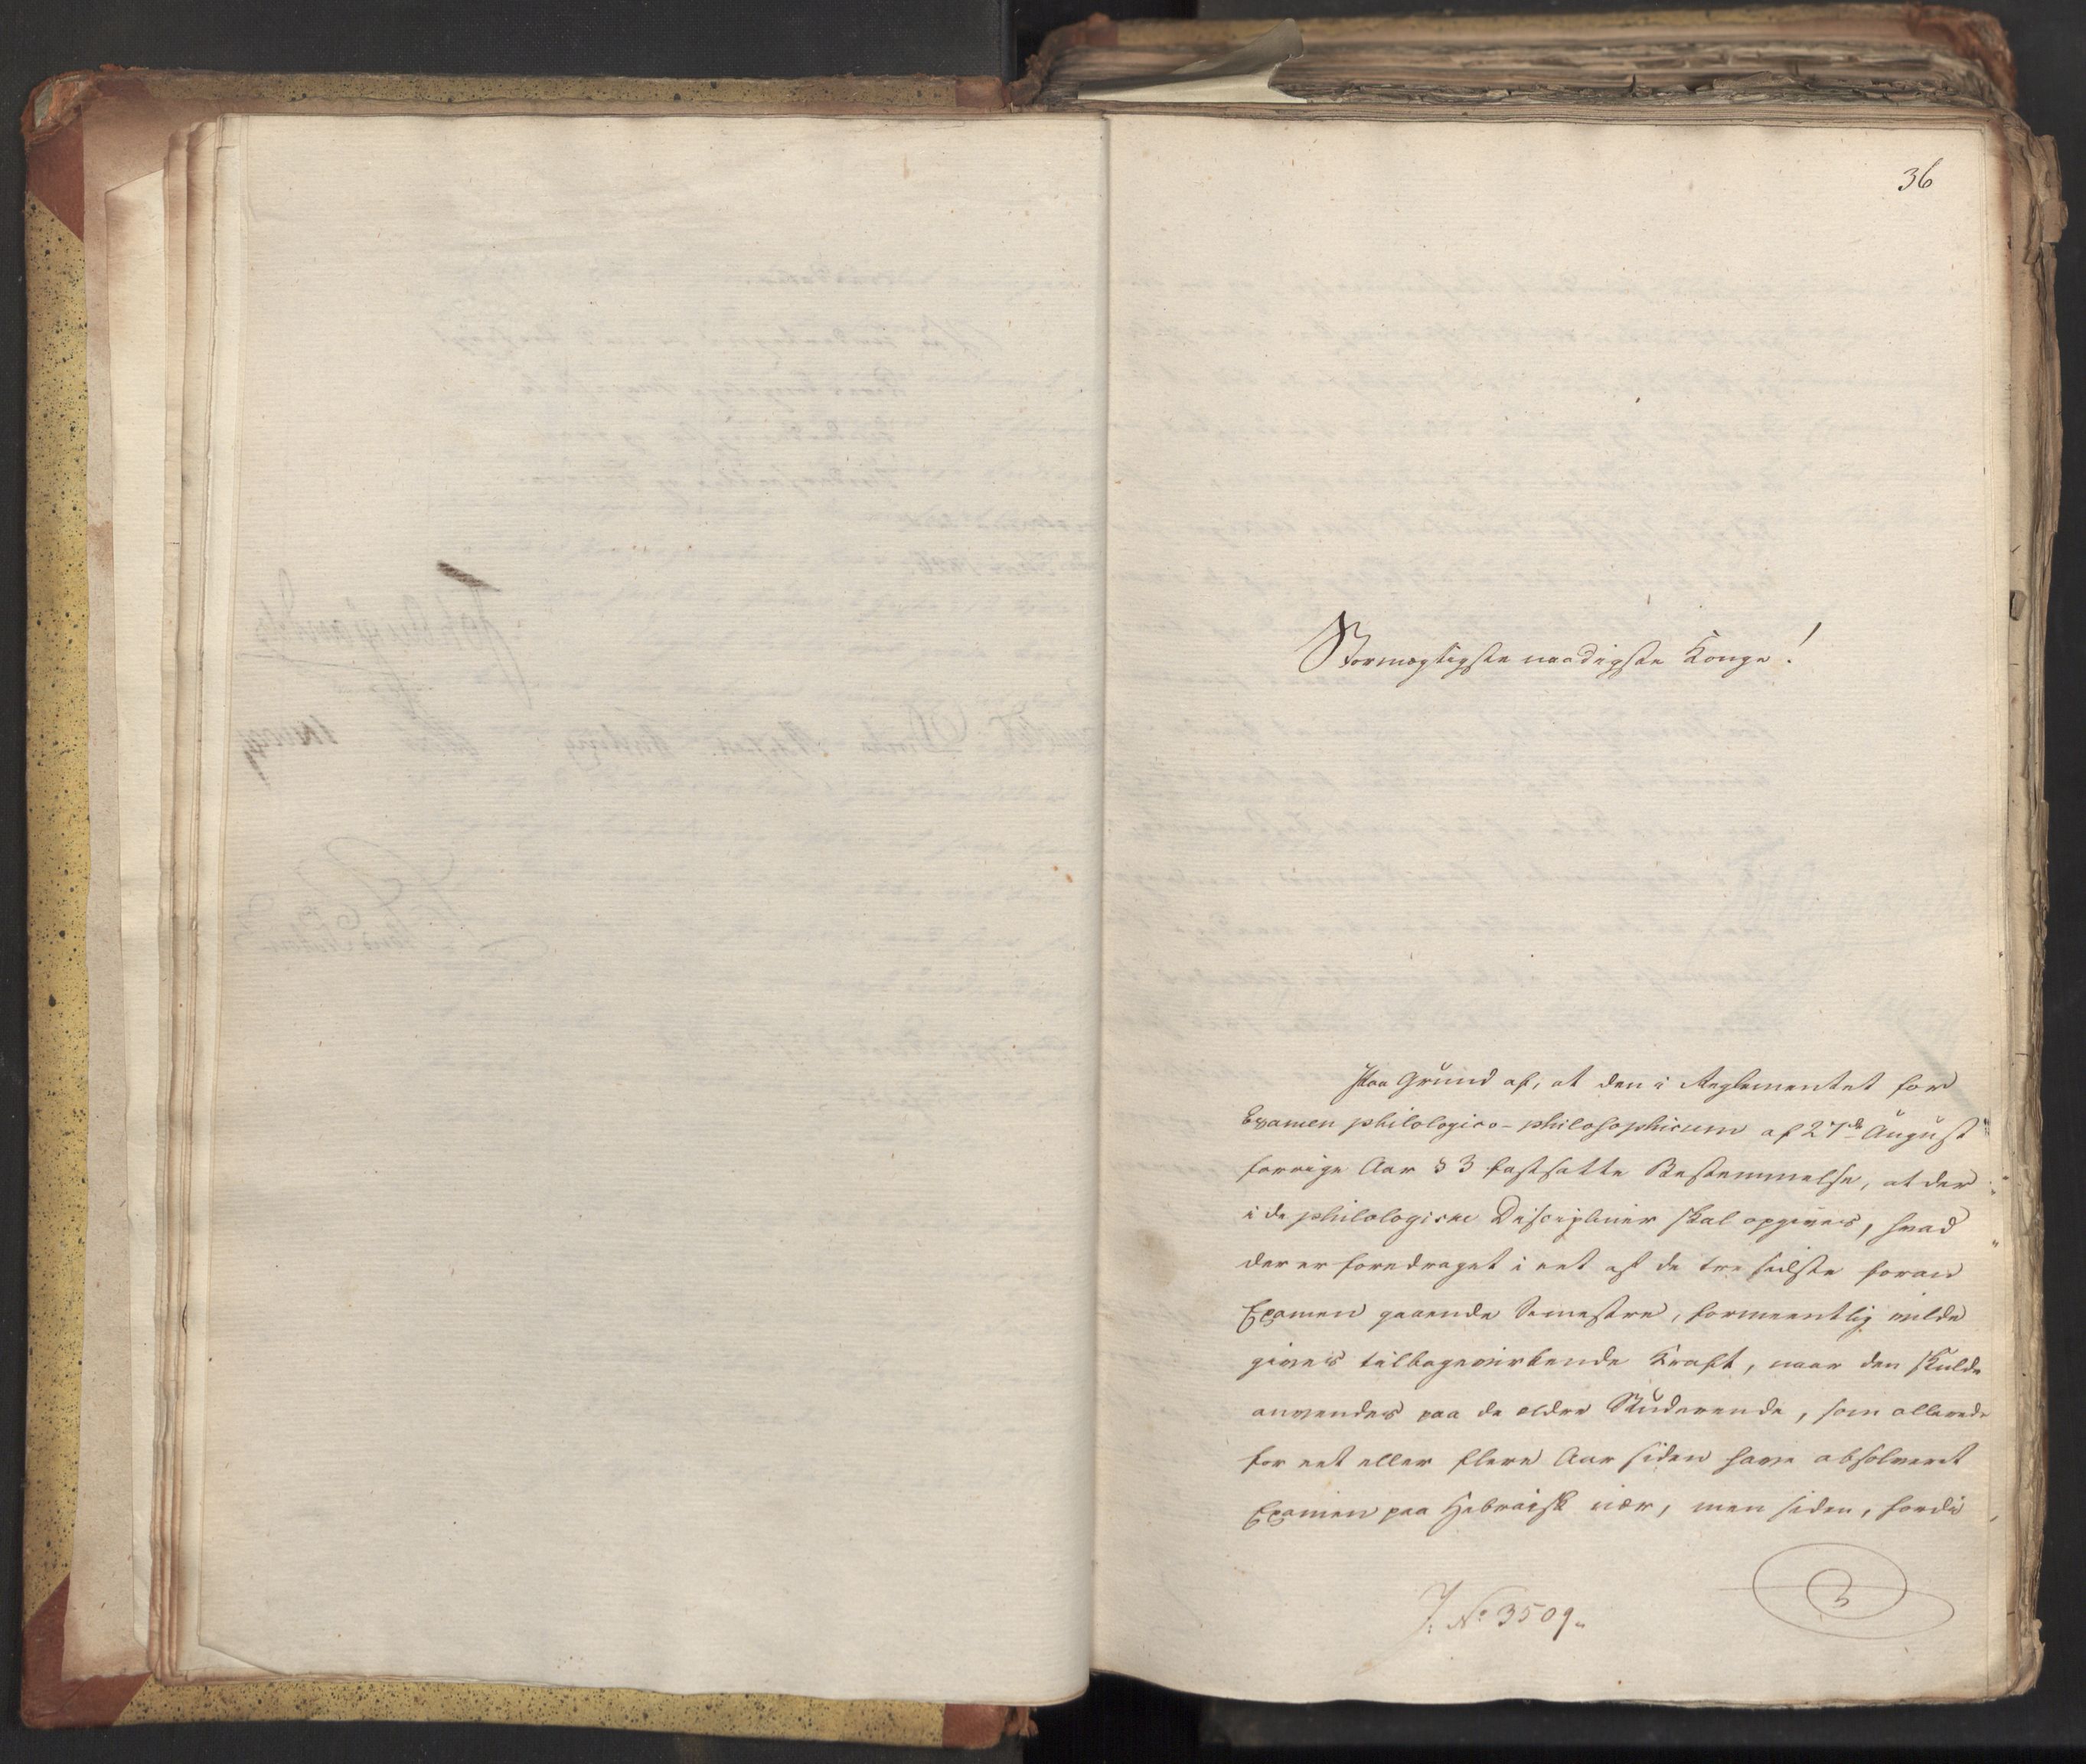 36
Stormægtigste naadigste Konge!
Paa Grund af, at den i Reglementet for
Examen philologico-philosophicum af 27de August
forrige Aar § 3 fastsatte Bestemmelse, at der
i de philologiske Discipliner skal opgives, hvad
der er foredraget i eet af de tre sidste foran
Examen gaaende Semestre, formeentlig vilde
gives tilbagevirkende Kraft, naar den skulde
anvendes paa de ældre Studerende, som allerede
for eet eller flere Aar siden have absolveret
Examen paa Hebraisk nær, men siden, fordi
J. No 3509.